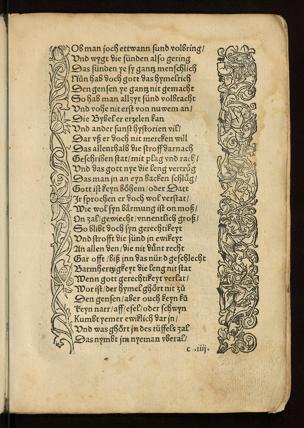 Ob man joch ettwann sünd volbring/
Vnd wygt die sünden also gering
Das sünden ye sy gantz menschlich
Nůn hab doch gott das hymelrich
Den gensen ye gantz nit gemacht
So hab man allzyt sünd volbracht
Vnd vohe nit erst von nuwem an/
Die Bybel er erzelen kan
Vnd ander sunst hystorien vil/
Dar vß er doch nit mercken will
Das allenthalb die stroff darnach
Geschriben stat/mit plag vnd rach/
Vnd das gott nye die leng vertrůg
Das man jn an eyn backen schlůg/
Gott ist keyn böhem/oder Datt
Jr sprochen er doch wol verstat/
Wie wol syn bärmung ist on moß/
On zal/gewiecht/vnentlich groß/
So blibt doch syn gerechtikeyt
Vnd strofft die sünd jn ewikeyt
An allen den/die nit důnt recht
Gar offt/biß jnn das nünd geschlecht
Barmhertzigkeyt die leng nit stat
Wenn gott gerechtikeyt verlat/
Wor ist/der hymel ghört nit zů
Den gensen/aber ouch keyn ků
Keyn narr/aff/esel/oder schwyn
Kumbt yemer ewiklich dar jn/
Vnd was ghört jn des tüffels zal
Das nymbt jm nyeman vberal/
c .iiij.